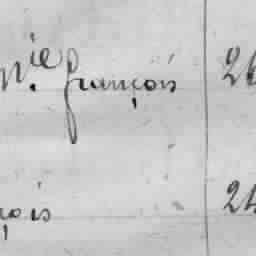 n.ie françois 26
çois 24